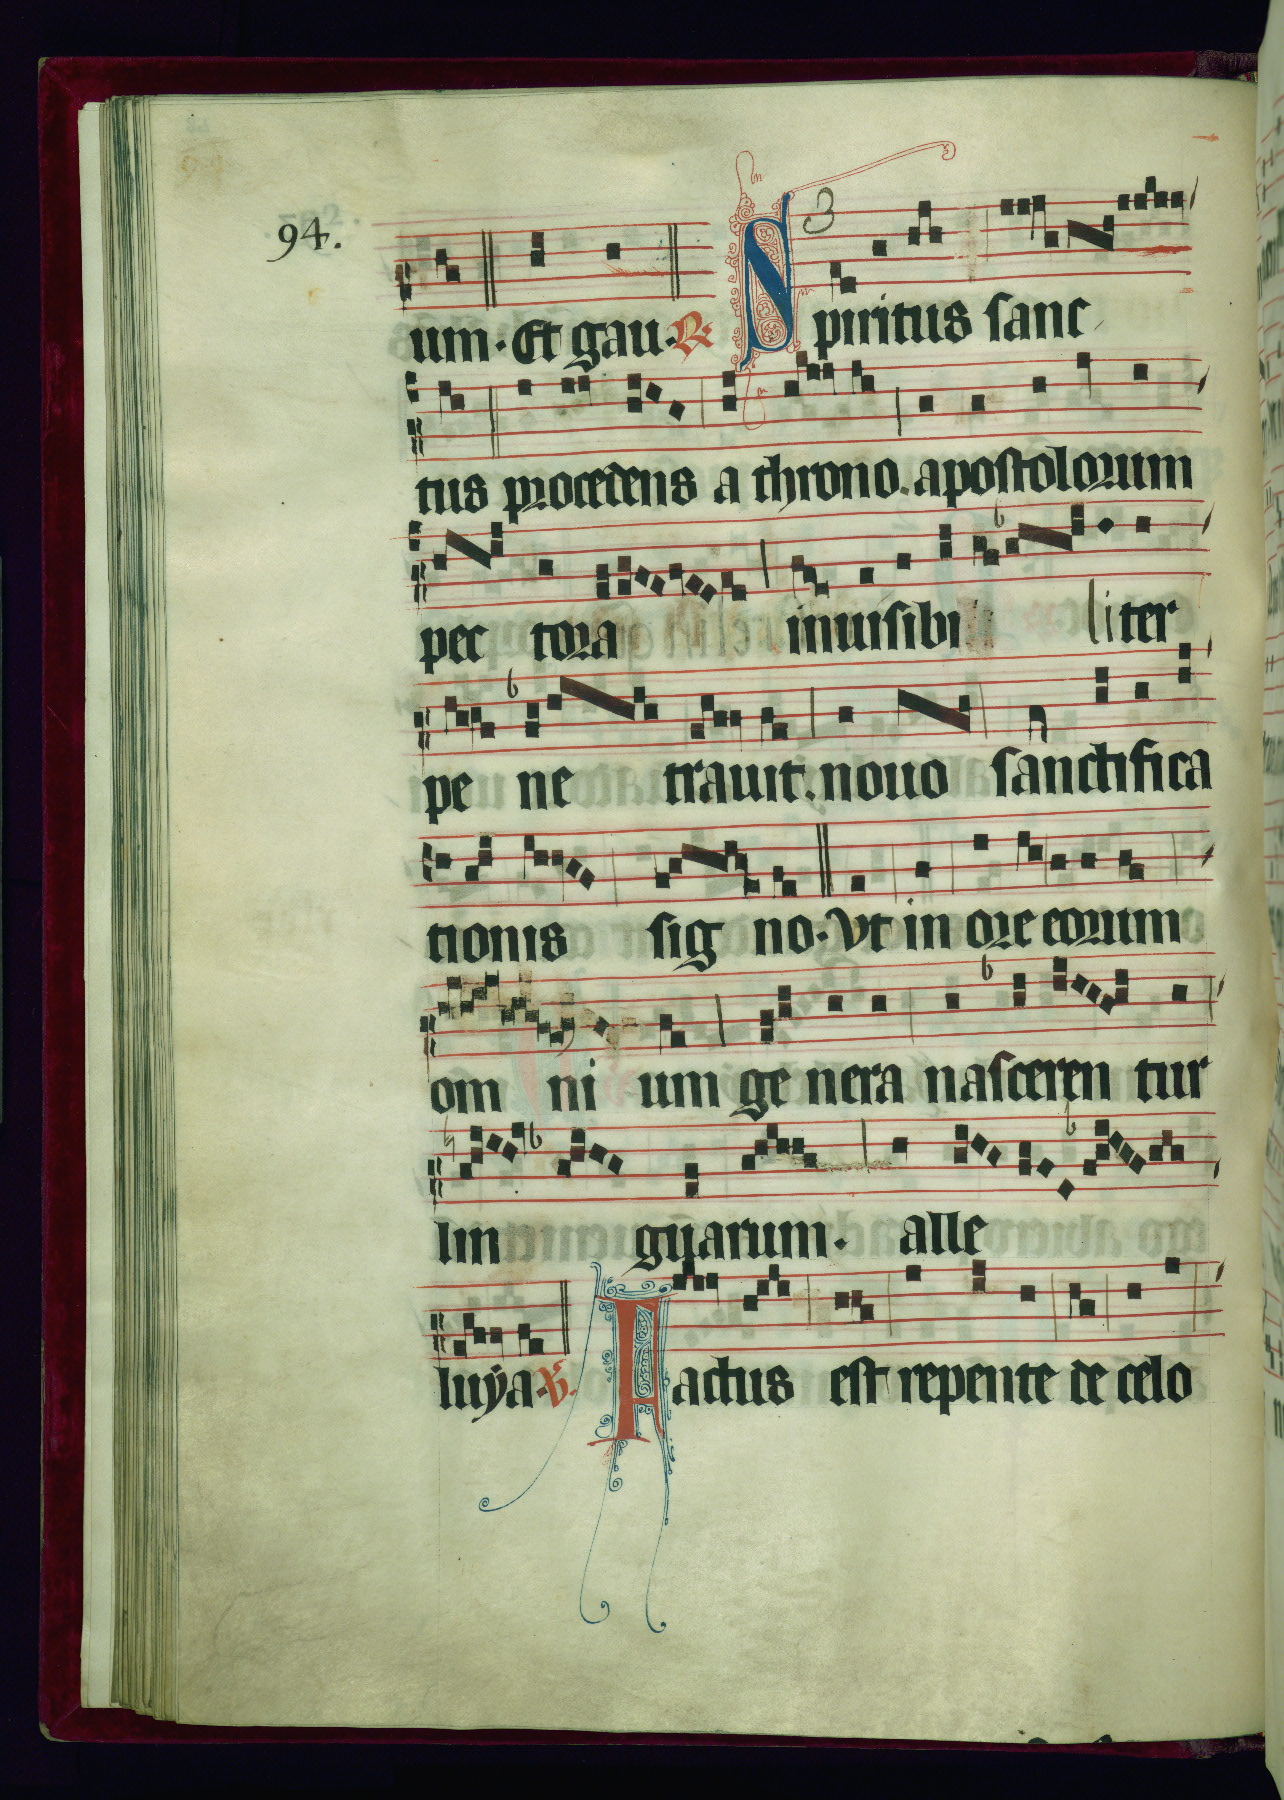 94.
3
um. Et gau. R. Spiritus sanc
tus procedens a throno. apostolorum
pec tora inuisibi liter
pe ne trauit. nouo sanctifica
tionis sig no. Vt in ore eorum
om ni um ge nera nasceren tur
lin guarum. alle
luÿa. V. Factus est repente de celo